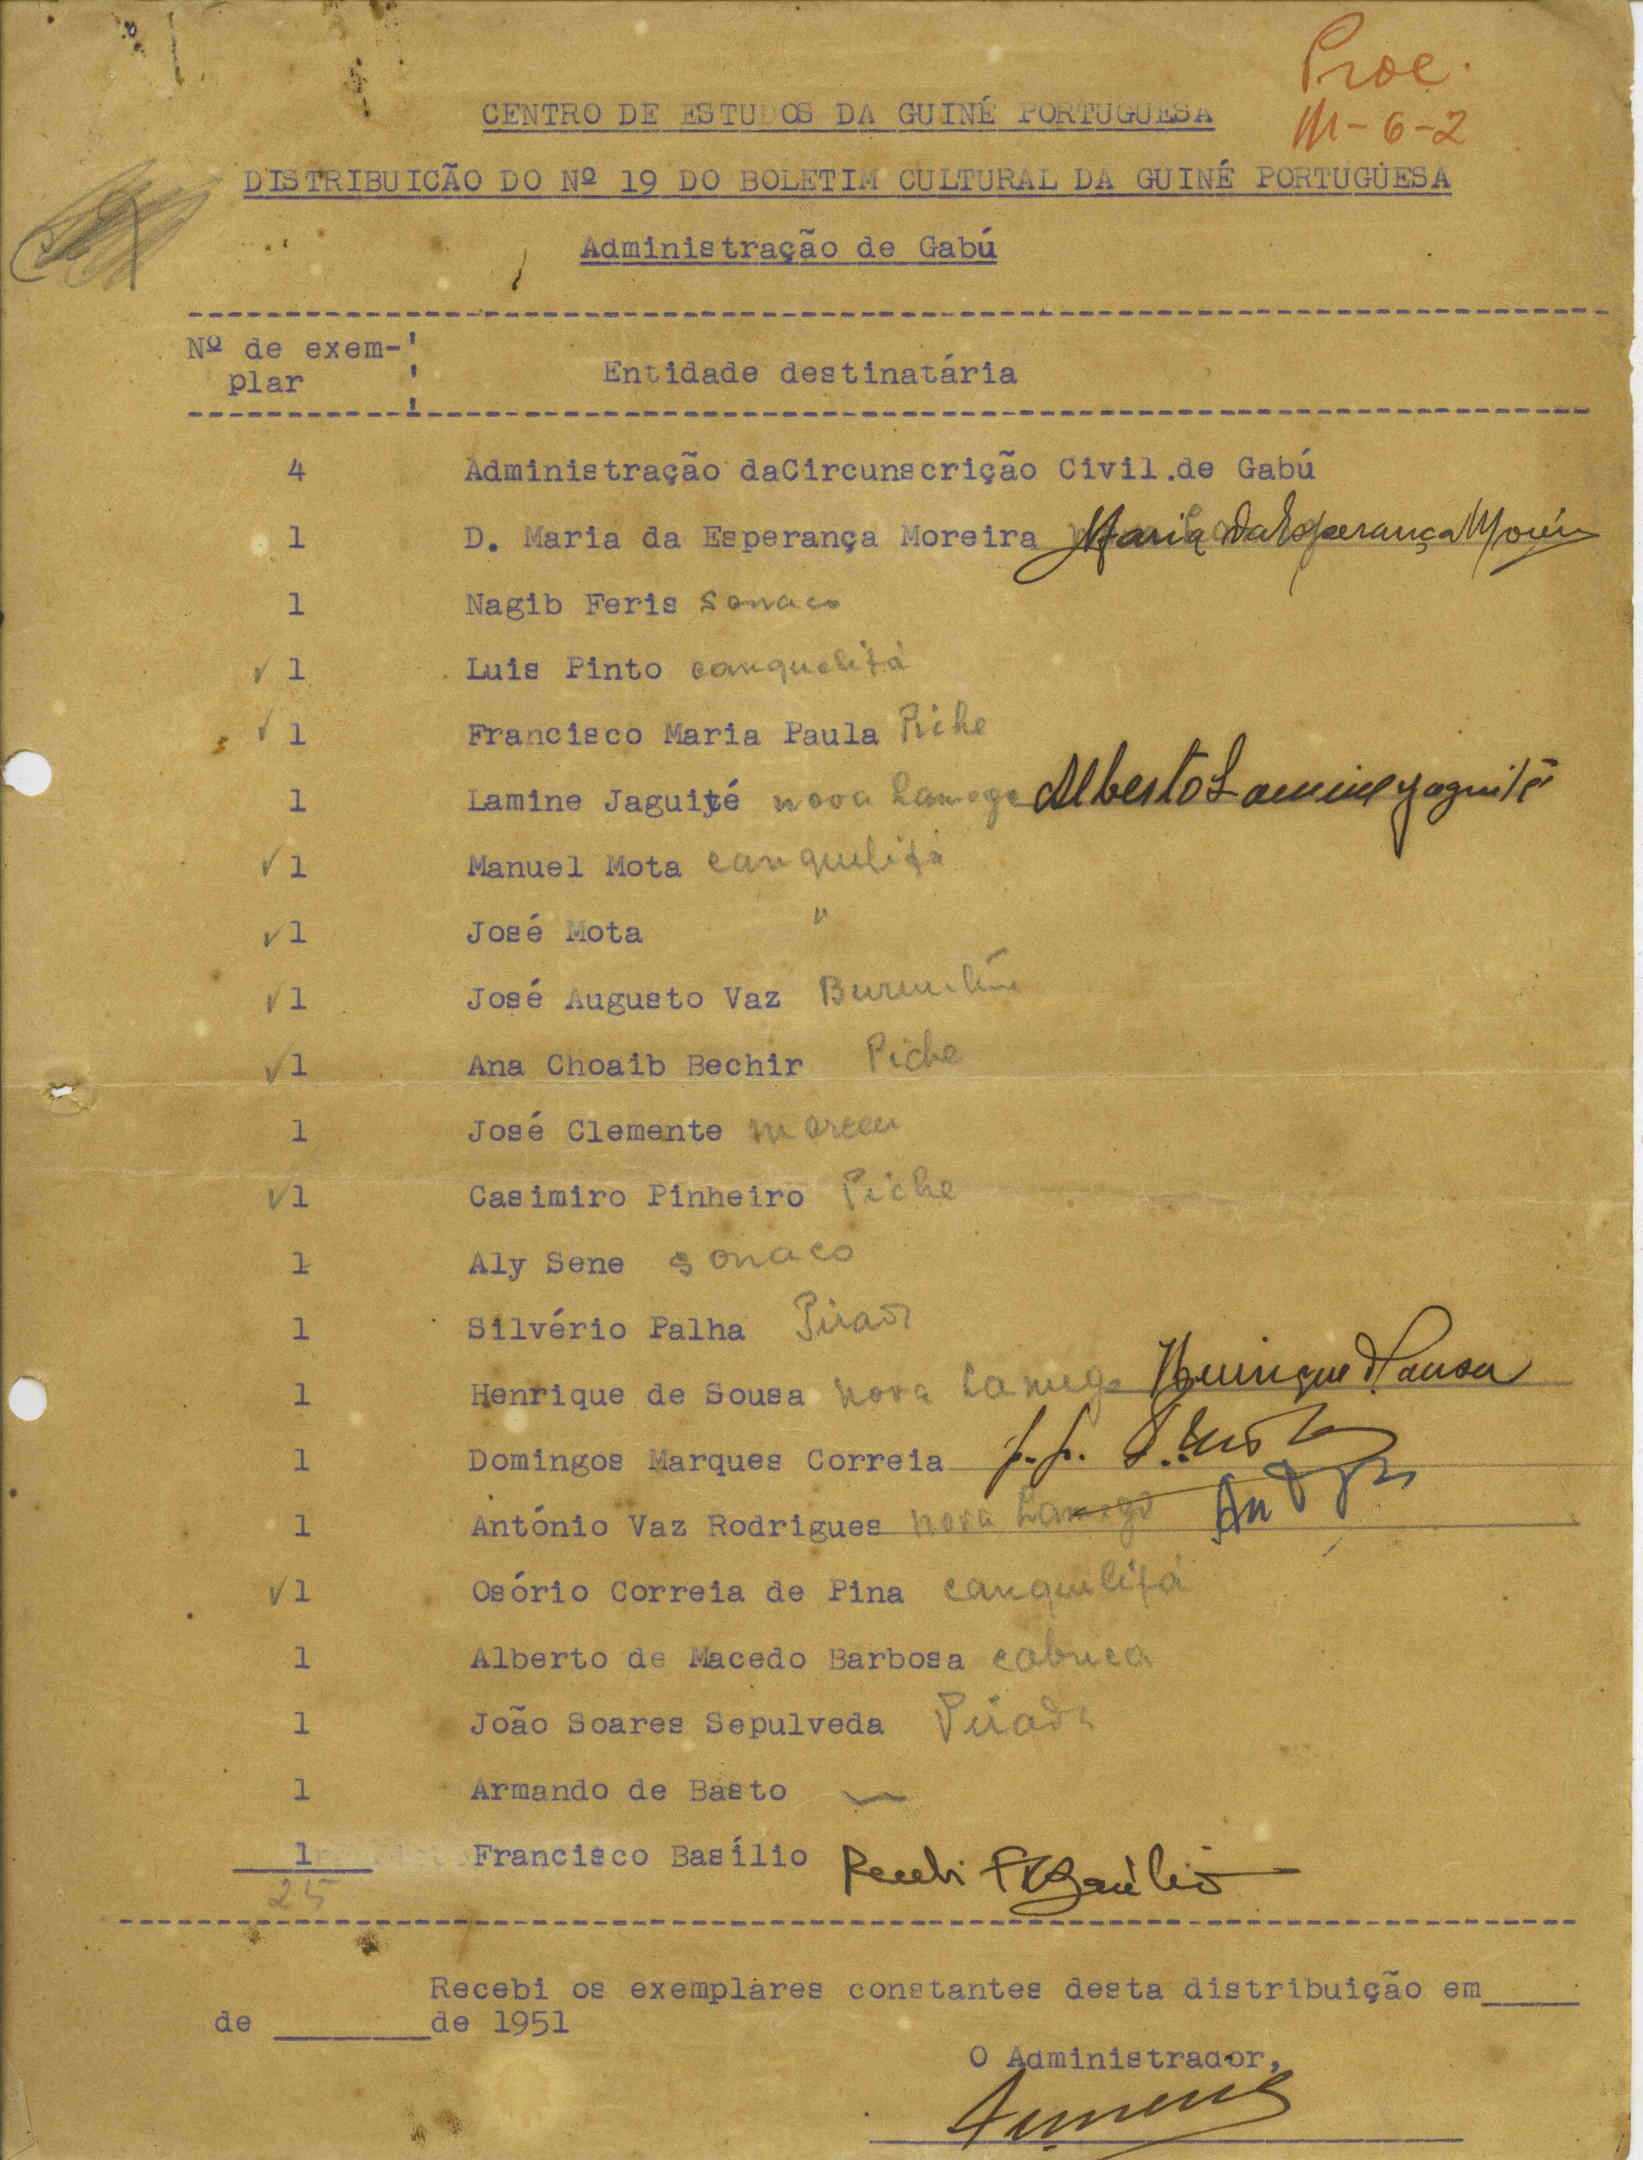 Proc.
M-6-2
CENTRO DE ESTUDOS DA GUINÉ PORTUGUESA
DISTRIBUICÃO DO Nº 19 DO BOLETIM CULTURAL DA GUINÉ PORTUGUESA
Administração de Gabú
Nº de exem-
plar
Entidade destinatária
4 Administração daCircunscrição Civil.de Gabú
1 D. Maria da Esperança Moreira Maria da Esperança
1 Nagib Feris Sonaco
✓ 1 Luis Pinto canquelifá
✓ 1 Francisco Maria Paula Piche
1 Lamine Jaguité nova Lamego Alberto Lamine Jaguité
✓ 1 Manuel Mota canquelifá
✓ 1 José Mota "
✓ 1 José Augusto Vaz
✓ 1 Ana Choaib Bechir Piche
1 José Clemente
✓ 1 Casimiro Pinheiro Piche
1 Aly Sene sonaco
1 Silvério Palha Pirada
1 Henrique de Sousa nova Lamego Henrique de Sousa
1 Domingos Marques Correia
1 António Vaz Rodrigues nova Lamego
✓ 1 Osório Correia de Pina canquelifá
1 Alberto de Macedo Barbosa cabuca
1 João Soares Sepulveda Pirada
1 Armando de Basto
1 Francisco Basílio Recebi FBasílio
25
Recebi os exemplares constantes desta distribuição em
de de 1951
O Administrador,